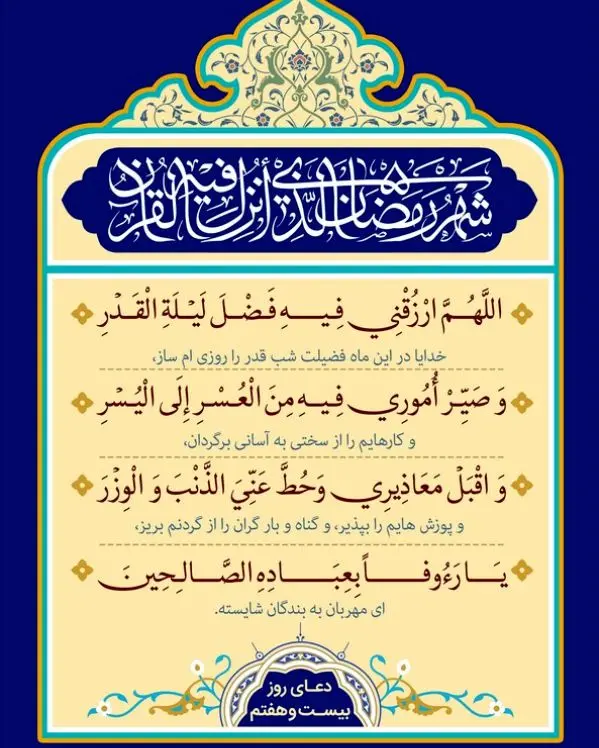 شَهْرُ رَمَضَانَ الَّذِي أُنْزِلَ فِيهِ الْقُرْآنُ
اللَّهُمَّ ارْزُقْنِي فِيهِ فَضْلَ لَيْلَةِ الْقَدْرِ
خدایا در این ماه فضیلت شب قدر را روزی ام ساز،
وَ صَيِّرْ أُمُورِي فِيهِ مِنَ الْعُسْرِ إِلَى الْيُسْرِ
و کارهایم را از سختی به آسانی برگردان،
وَ اقْبَلْ مَعَاذِيرِي وَحُطَّ عَنِّيَ الذَّنْبَ وَ الْوِزْرَ
و پوزش هایم را بپذیر، و گناه و بار گران را از گردنم بریز،
يَا رَءُوفاً بِعِبَادِهِ الصَّالِحِينَ
ای مهربان به بندگان شایسته.
دعای روز
بیست و هفتم